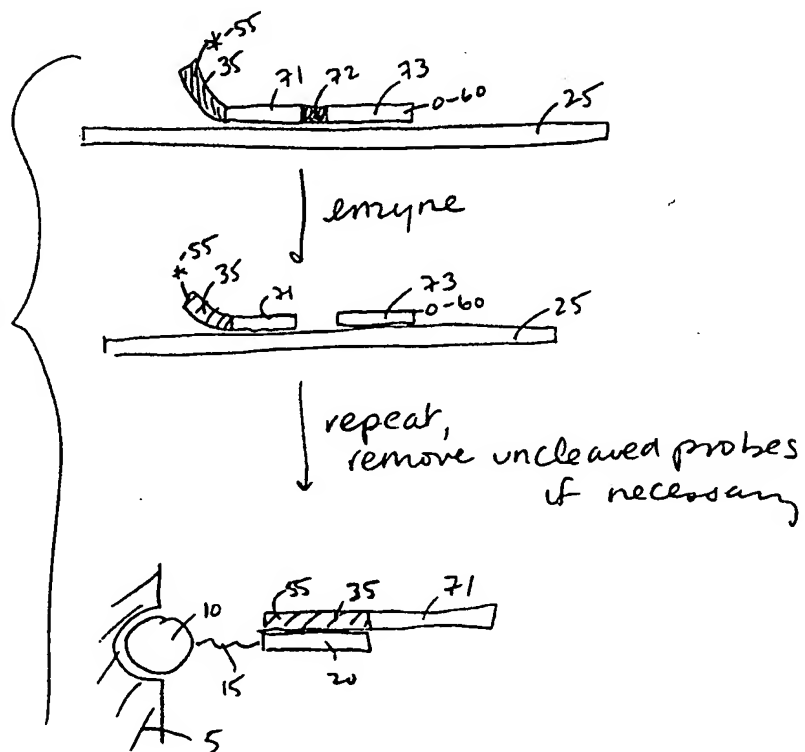 *-55
35 71 72 73
0-60 25
enzyme
*-55
35 71 73
0-60 25
repeat,
remove uncleaved probes
if necessary
10 55 35 71
15 20
5